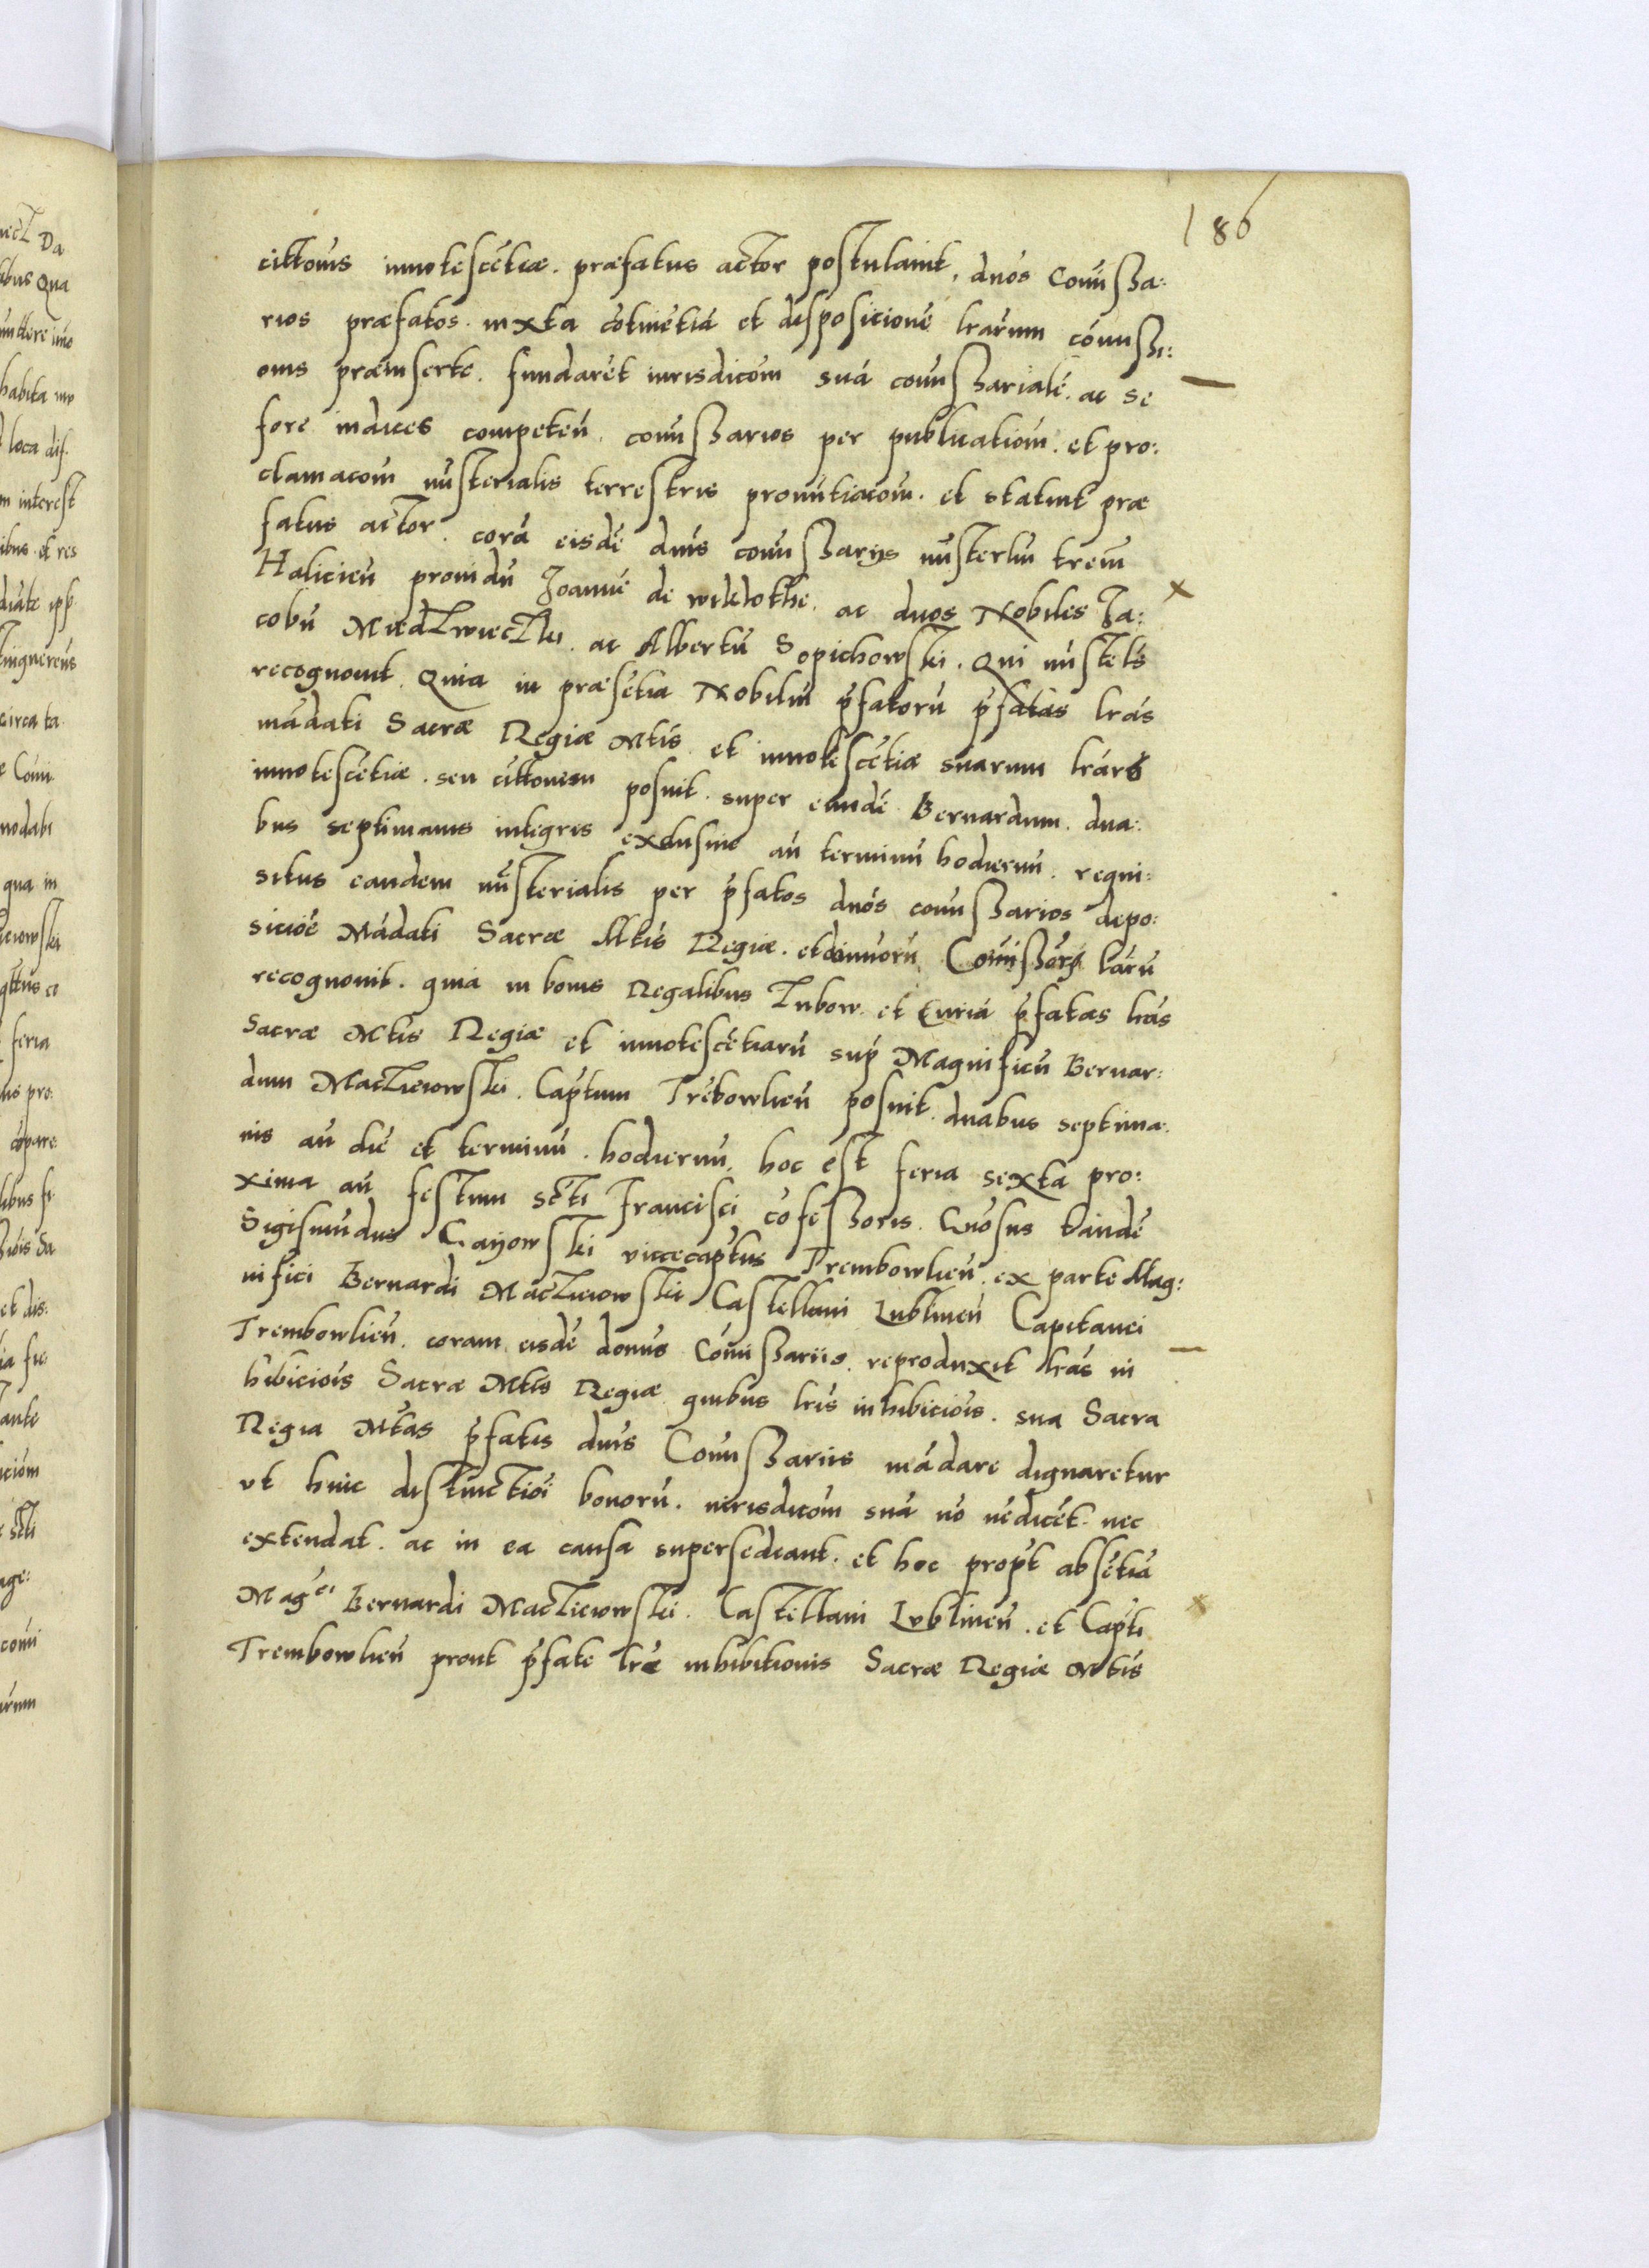 186
cittonis innotescẽtiæ. præfatus actor postulauit, dnos Comissa:
rios præfatos. iuxta cõtinẽtiã et dispositionẽ lrarum comissi:
onis præinserte. fundarẽt iurisdicõm suã comissarialẽ. ac se
fore iudices competeñ. comissarios per publicationẽ. et pro:
clamacom misterialis terrestris pronũtiacom. et statuit præ
fatus actor. corã eisdẽ dnis comissariis misterlm trem
Haliciẽn prouidũ Joannẽ de wiktothe. ac duos Nobiles Ja:
cobũ Miedzwieczki. ac Albertũ Sopichowski. Qui mistels
recognouit Quia in præsẽtia Nobiliũ p̃fatorũ p̃fatas lras
mãdati Sacræ Regiæ Mtis et innotescẽtiæ suarum lrarũ
innotescẽtiæ. seu cittonem posuit. super eundẽ Bernardum. dua:
bus septimanis integris exclusiue an̄ terminũ hodiernũ. requi:
situs eandem misterialis per p̃fatos dnos comissarios depo:
siciõe Mãdati Sacræ Mtis Regiæ. et Comissar larũ
recognouit. quia in bonis Regalibus Zubow. et Curiã p̃fatas lras
Sacræ Mtis Regiæ et innotescẽtiarũ sup Magnificũ Bernar:
dum Macziewski. Captum Trẽbowlieñ posuit. duabus septima.
nis an̄ diẽ et terminũ. hodiernũ. hoc est feria sexta pro:
xima an̄ festum scti Francisci cõfessoris. Gnosus tandẽ
Sigismũdus Gayowski vicecaptus Trembowlieñ. ex parte Mag:
nifici Bernardi Macziewski Castellani Lublineñ Capitanei
Trembowlieñ. coram eisdẽ domis Comissariis. reproduxit lras in
hibiciois Sacræ Mtis Regiæ quibus lris inhibiciois. sua Sacra
Regia Mtas p̃fatis dnis Comissariis mãdare dignaretur
vt huic distinctioi bonorũ. iurisdicom suã nõ vẽdicẽt. nec
extendat. ac in ea causa supersedeant. et hoc propt absẽtiã
Magci Bernardi Macziewski. Castellani Lublineñ. et Capti
Trembowlieñ prout p̃fate lræ inhibitionis Sacræ Regiæ Mtis